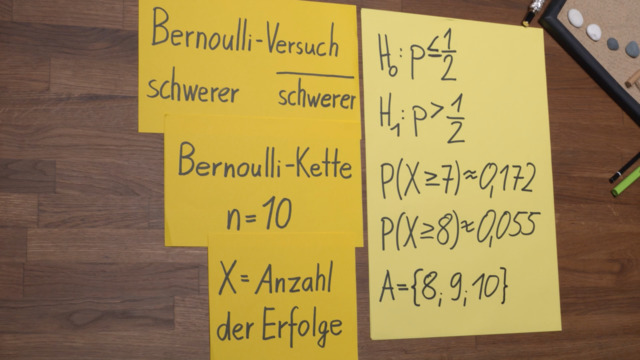 Bernoulli-Versuch
schwerer schwerer
Bernoulli-Kette
n=10
X=Anzahl
der Erfolge
H₀: p≤1/2
H₁: p>1/2
P(X≥7)≈0,172
P(X≥8)≈0,055
A={8; 9; 10}